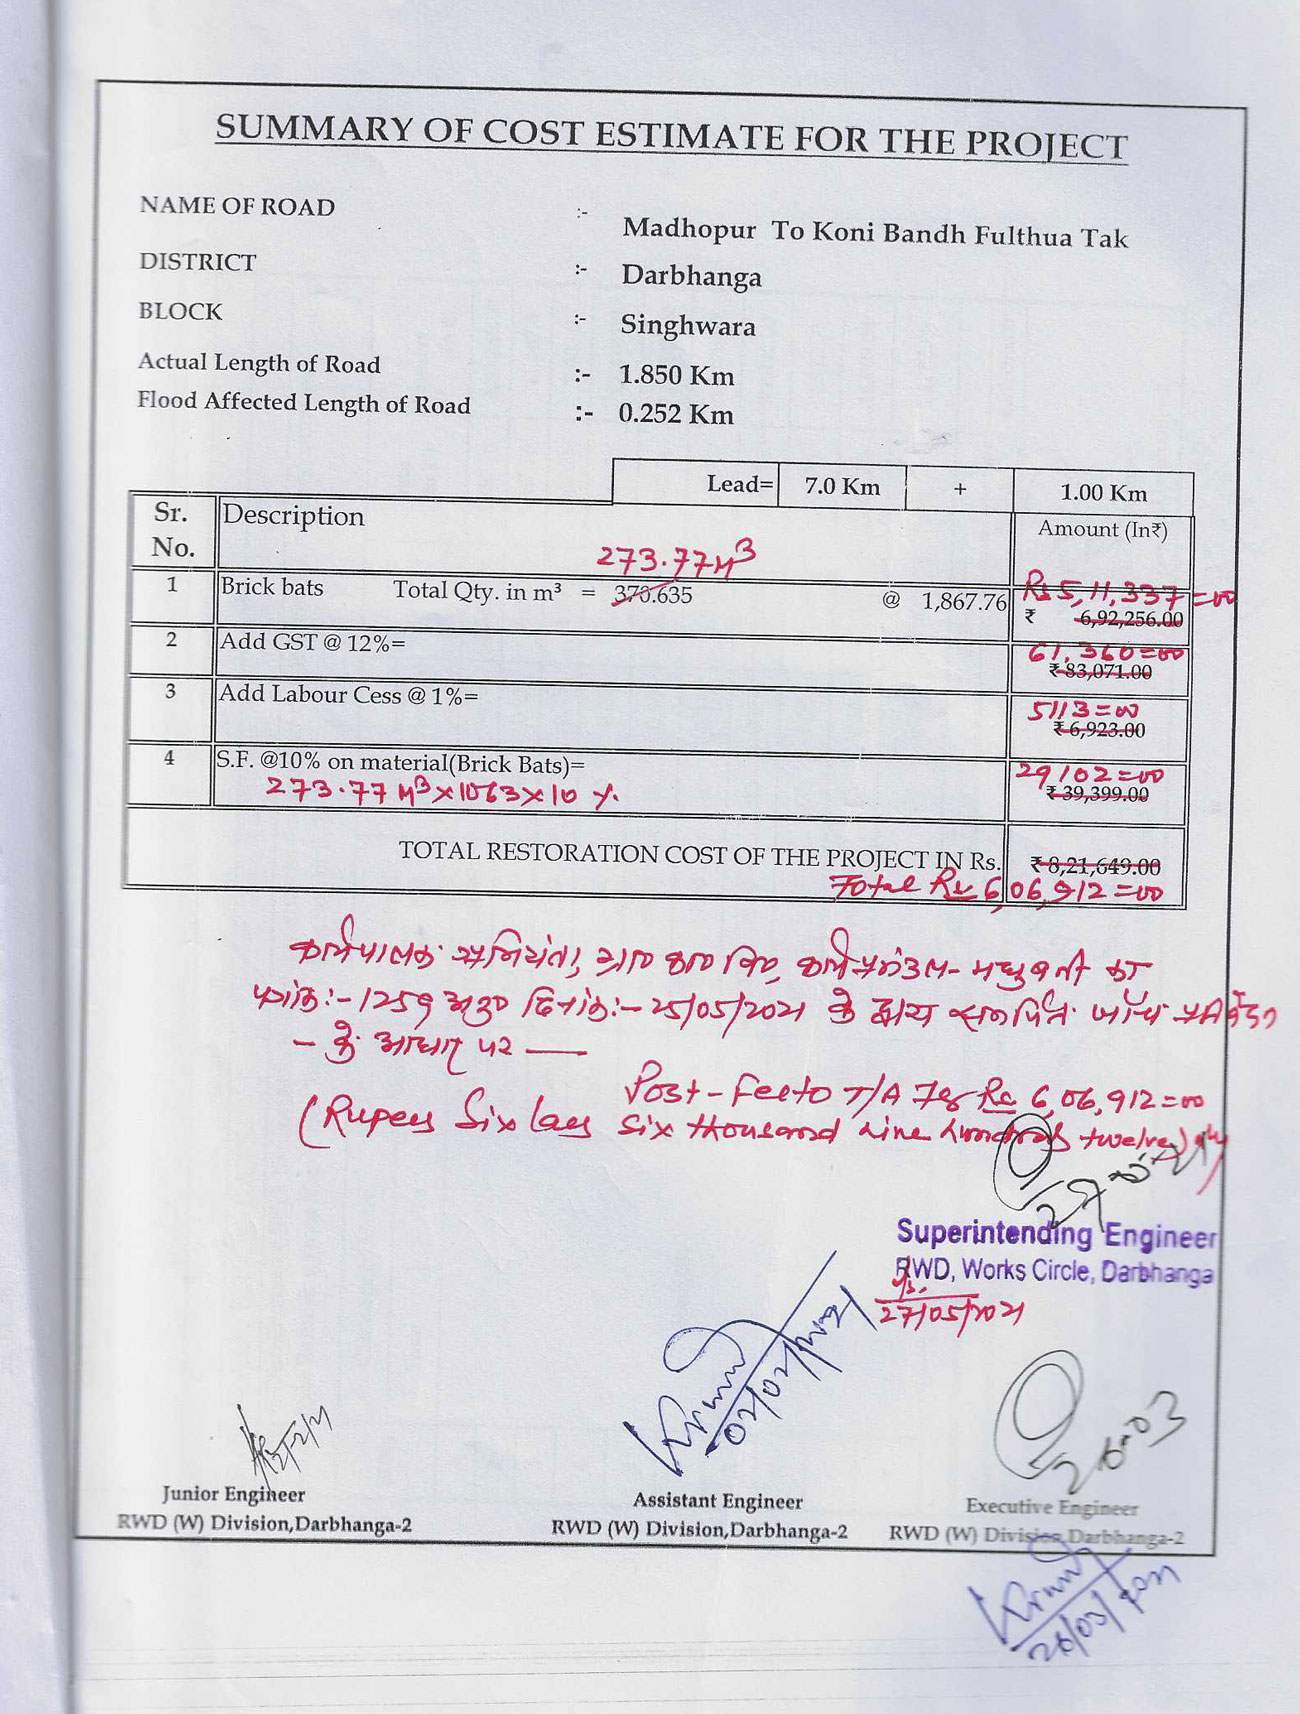 SUMMARY OF COST ESTIMATE FOR THE PROJECT
NAME OF ROAD :- Madhopur To Koni Bandh Fulthua Tak
DISTRICT :- Darbhanga
BLOCK :- Singhwara
Actual Length of Road :- 1.850 Km
Flood Affected Length of Road :- 0.252 Km
Lead= 7.0 Km + 1.00 Km
Sr. No. Description Amount (In₹)
273.77 M³
1 Brick bats Total Qty. in m³ = 370.635 @ 1,867.76 Rs 5,11,337=00
₹ 6,92,256.00
61,360=00
2 Add GST @ 12%= ₹ 83,071.00
3 Add Labour Cess @ 1%= 5113=00
₹ 6,923.00
4 S.F. @10% on material(Brick Bats)= 29102=00
273.77 M³ x 1063 x 10 %. ₹ 39,399.00
TOTAL RESTORATION COST OF THE PROJECT IN Rs. ₹ 8,21,649.00
Total Rs 6,06,912=00
कार्यपालक अभियंता, ग्रा० का० वि०, कार्य प्रमंडल- मधुबनी का
पत्रांक:- 1259 अनु० दिनांक:- 25/05/2021 के द्वारा समर्पित जाँच प्रतिवेदन
- के आधार पर —
Post-Facto T/A For Rs 6,06,912=00
(Rupees Six Lacs Six thousand Nine hundred twelve) only
Superintending Engineer
RWD, Works Circle, Darbhanga
27/05/2021
Junior Engineer
RWD (W) Division,Darbhanga-2
Assistant Engineer
RWD (W) Division,Darbhanga-2
26-03
Executive Engineer
RWD (W) Division,Darbhanga-2
26/03/2021